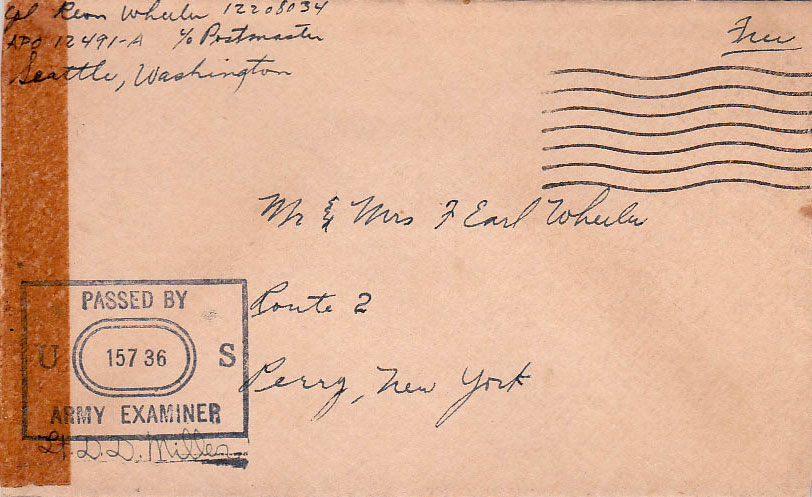 Cpl Keon Wheeler 12208034
APO 12491-A c/o Postmaster
Seattle, Washington
Free
Mr & Mrs F Earl Wheeler
Route 2
Perry, New York
PASSED BY
U 15736 S
ARMY EXAMINER
Lt. D.D. Miller